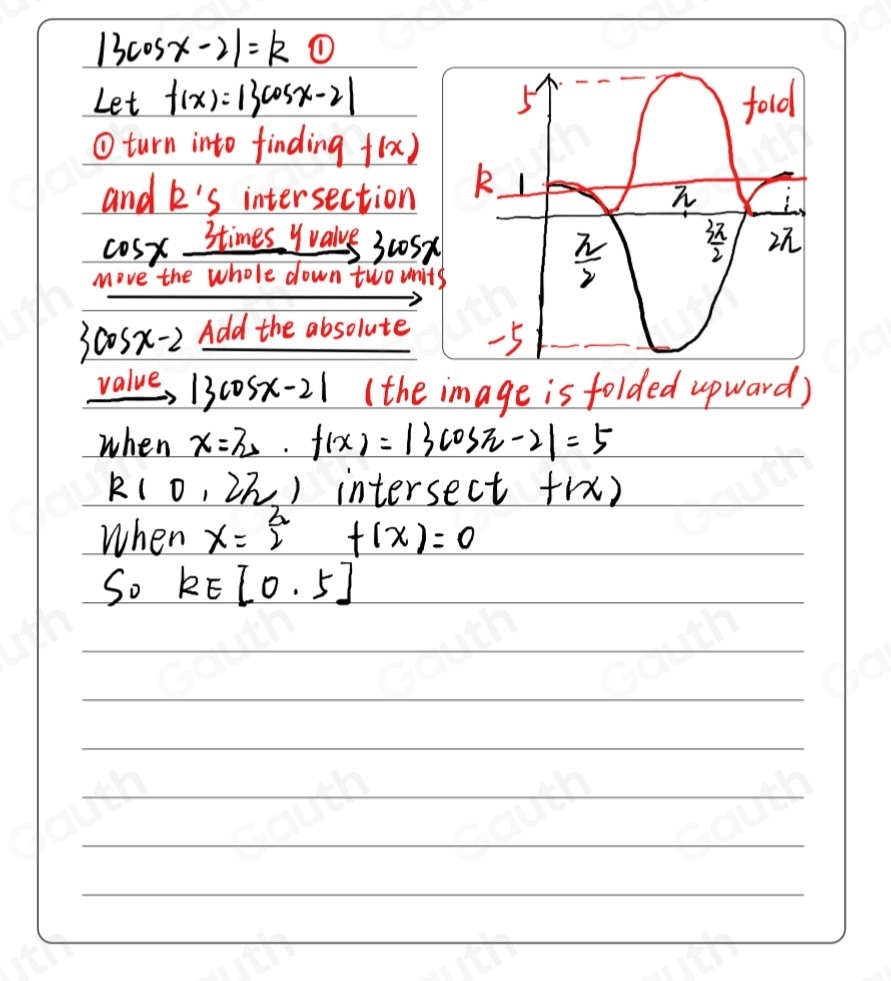 |3cosx-2|=k ①
Let f(x)=|3cosx-2|
① turn into finding f(x)
and k's intersection
cosx 3times y value 3cosx
move the whole down two units
3cosx-2 Add the absolute
value |3cosx-2| (the image is folded upward)
5 fold
k 1 π
π/2 3π/2 2π
-5
when x=π. f(x)=|3cosπ-2|=5
k(0,2π) intersect f(x)
When x=π/2 f(x)=0
So k∈[0.5]
Gauth